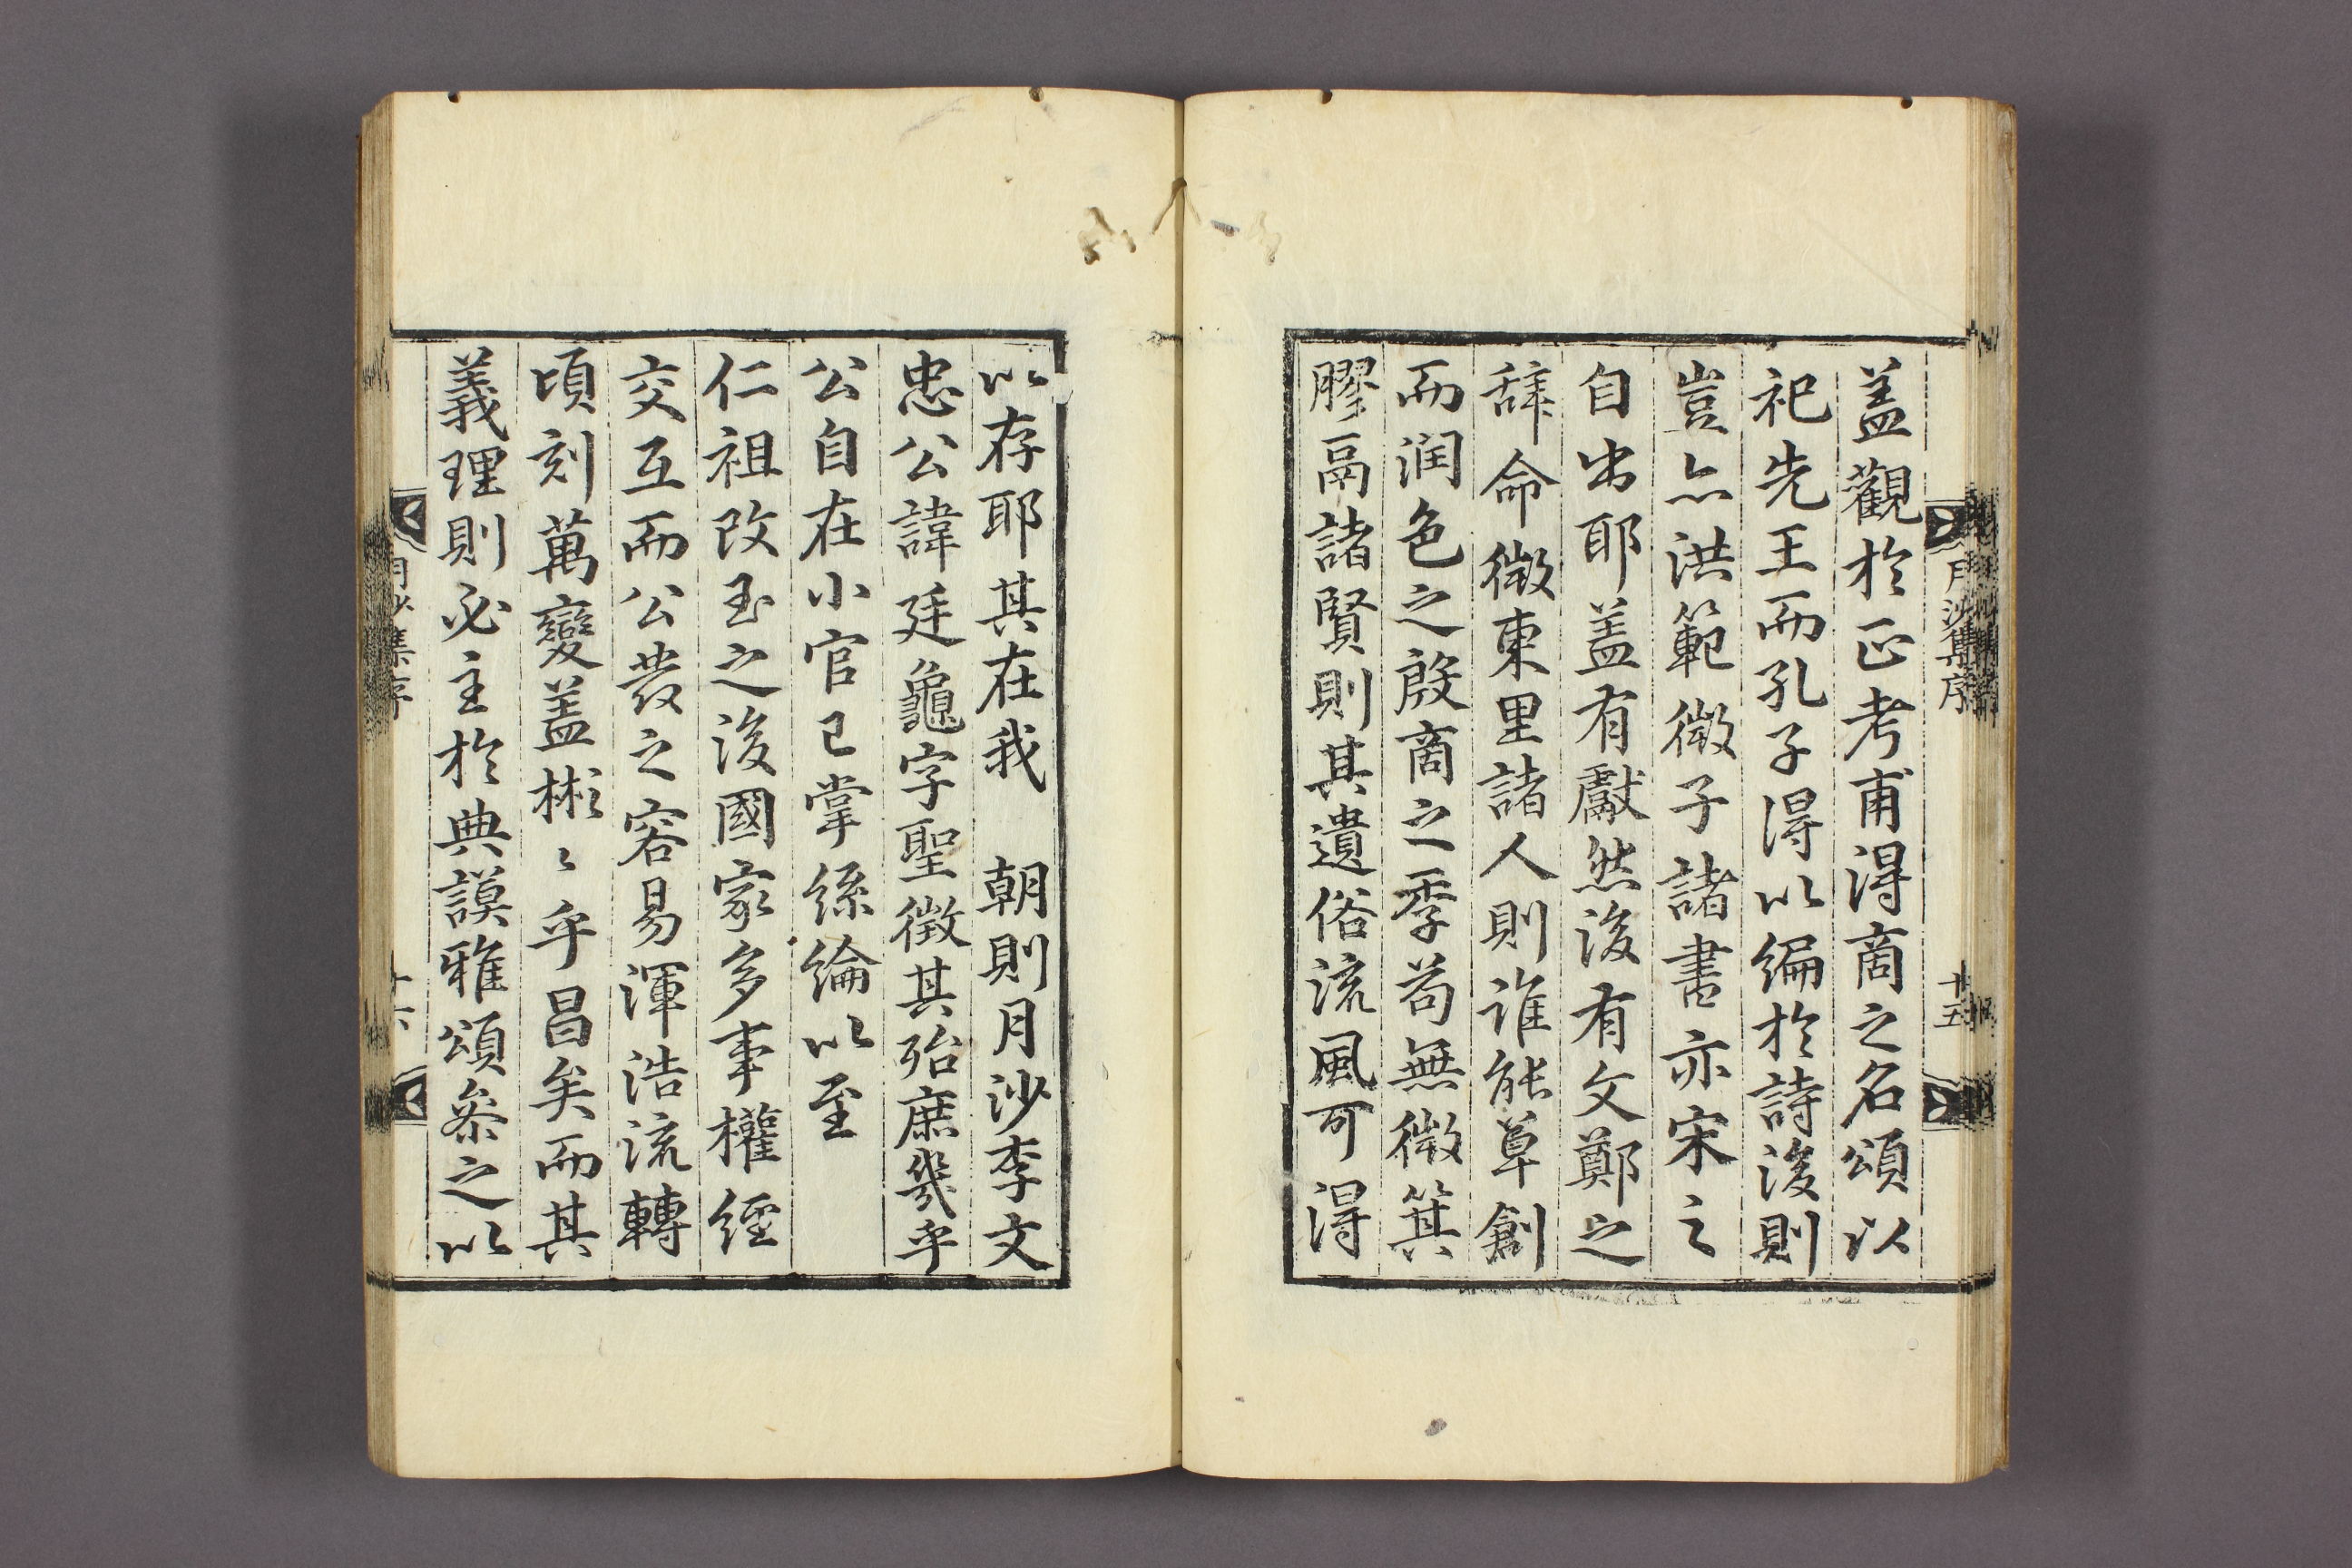 月沙集序
十五
盖觀於正考甫得商之名頌以
祀先王而孔子得以編於詩後則
豈亦洪範微子諸書亦宋之
自出耶盖有獻然後有文鄭之
辞命微東里諸人則誰能草創
而润色之殷商之季苟無微箕
膠鬲諸賢則其遺俗流風可得
以存耶其在我 朝則月沙李文
忠公諱廷龜字聖徴其殆庶幾乎
公自在小官已掌絲綸以至
仁祖改玉之後國家多事權經
交互而公發之容易渾浩流轉
頃刻萬變盖彬〻乎昌矣而其
義理則必主於典謨雅頌叅之以
月沙集序
十六